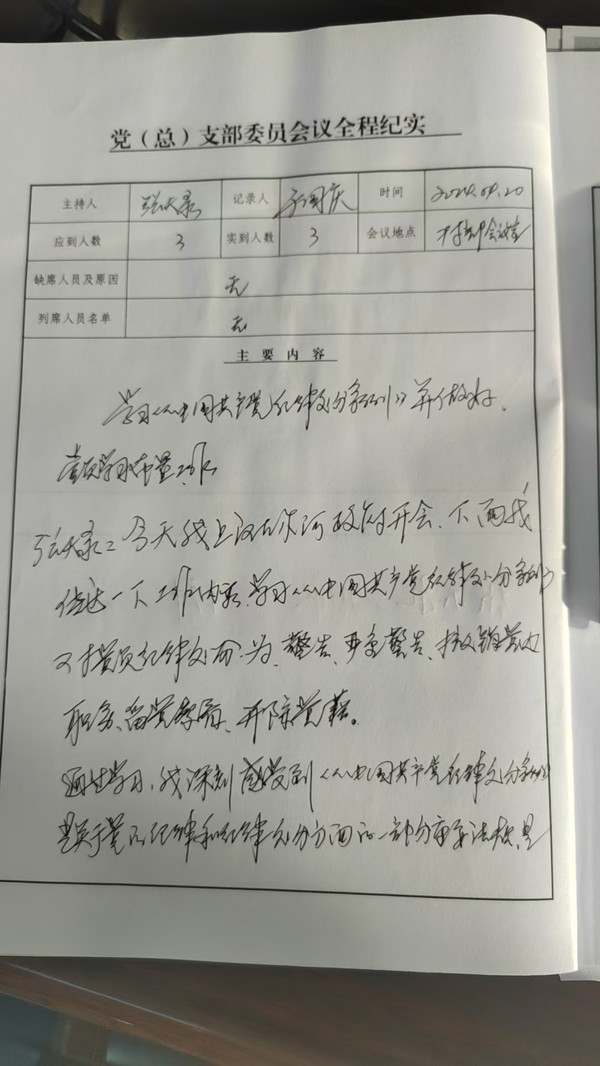 党（总）支部委员会议全程纪实
主持人 记录人 时间 2024.09.20
应到人数 3 实到人数 3 会议地点 会议室
缺席人员及原因 无
列席人员名单 无
主要内容
学习《中国共产党纪律处分条例》并做好
党员学习布置工作
今天线上 开会、下面我
传达一下工作内容、学习《中国共产党纪律处分条例》
对党员纪律处分为、警告、严重警告、撤销党内
职务、留党察看、开除党籍。
通过学习，我深刻感受到《中国共产党纪律处分条例》
是关于党的纪律和纪律处分方面的一部分重要法规，是